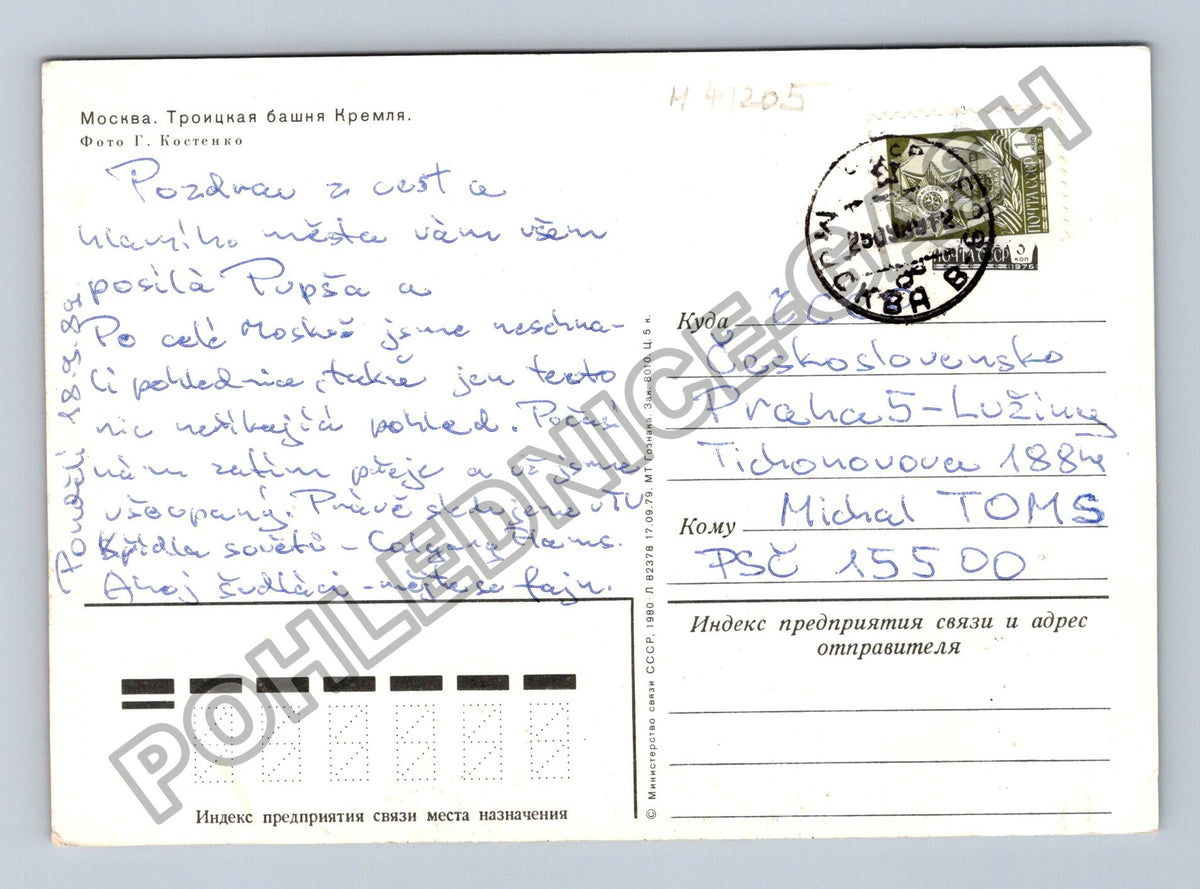 Москва. Троицкая башня Кремля.
Фото Г. Костенко
M 41205
Pozdrav z cest a
hlavního města vám všem
posílá Pupša a
Po celé Moskvě jsme nesehna-
li pohlednice, takže jen tento
nic neříkající pohled. Počasí
nám zatím přeje a už jsme
ušoupaný. Právě sledujeme v TV
Křídla sovětů - Calgary Flams.
Ahoj šudláci - mějte se fajn.
Pondělí 18.9.89
ПОЧТА СССР 1 коп 1976
ПОЧТА СССР 3 коп 1976
МОСКВА
Куда ČSSR
Československo
Praha 5 - Lužiny
Tichonovova
Кому Michal TOMS
PSČ 155 00
Индекс предприятия связи и адрес
отправителя
Индекс предприятия связи места назначения
© Министерство связи СССР, 1980. Л 82378 17.09.79. МТ Гознака. Зак. 8010. Ц. 5 к.
POHLEDNICE-CASH